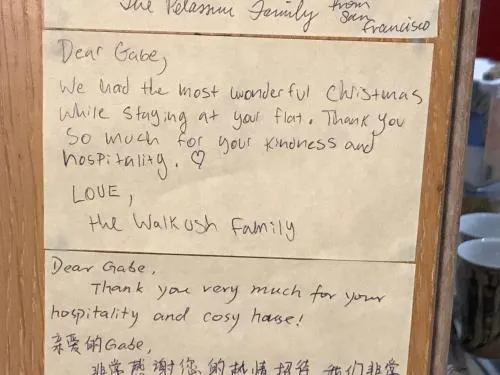 The Pelassum Family from
San
Francisco
Dear Gabe,
We had the most wonderful Christmas
while staying at your flat. Thank you
so much for your kindness and
hospitality. ♡
LOVE,
the Walkush Family
Dear Gabe,
Thank you very much for your
hospitality and cosy house!
亲爱的Gabe,
非常感谢您的热情招待 我们非常